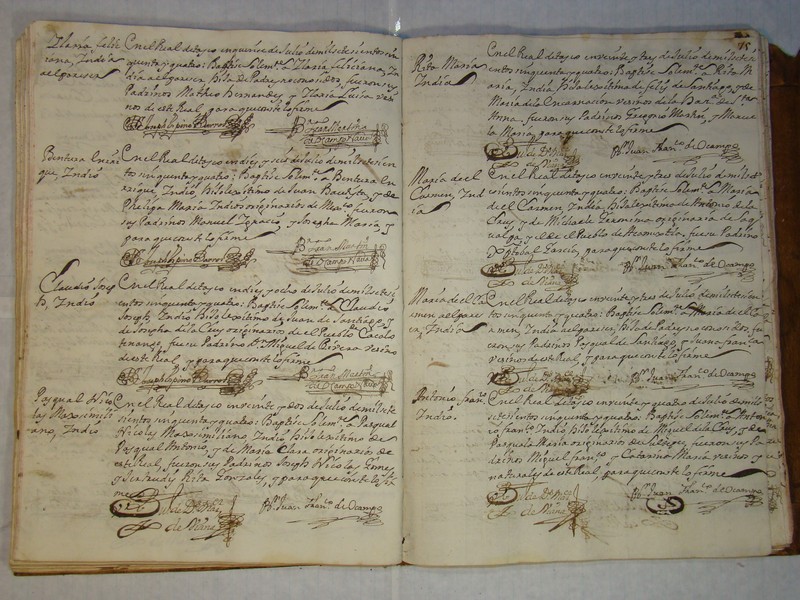 En el Real de tasco en quinse de Julio de mil setesientos sin
quenta y quatro: Baptisé Solem.te a Ilaria, feliciana, In
dia, al pareser, hija de Padres no conosidos, fueron sus
Padrinos Matheo Hernandes, y Ilaria Luisa vesi
nos de este Real, y para que conste lo firme
Ilaria, felis
iana, India
al pareser
Br Juan Martin
de Ocampo Nava
Bentura Enrri
que, Indio
En el Real de tasco en dies, y seis de Julio de mil setesien
tos sinquenta y quatro: Baptisé Solem.te a Bentura En
rrique Indio, hijo lexitimo de Juan Bauptista, y de
Phelipa Maria Indios originarios de fueron
sus Padrinos Manuel Ignacio, y Josepha Maria, y
para que conste lo firme
Br Juan Martin
de Ocampo Nava
Claudio Josep
h, Indio
En el Real de tasco en dies, y ocho de Julio de mil setesi
entos sinquenta y quatro: Baptisé Solem.te a Claudio
Joseph, Indio, hijo Lexitimo de Juan de Santiago, y
de Josepha de la Crus originarios de el Pueblo Cacalo
tenango, fue su Padrino Dn Miguel de Rivera vesino
de este Real, y para que conste lo firme
Br Juan Martin
de Ocampo Nava
Pasqual Nico
las Maximili
ano, Indio
En el Real de tasco en veinte, y dos de Julio de mil sete
sientos sinquenta y quatro: Baptisé Solem.te a Pasqual
Nicolas Maximiliano, Indio, hijo lexitimo de
Pasqual Antonio, y de Maria Clara originarios de
este Real, fueron sus Padrinos Joseph Nicolas
y Gertrudis Rita Gonzales, y para que conste lo fir
me
Br Juan Fran.co de Ocampo
Rita Maria
India
En el Real de tasco en veinte, y tres de Julio de mil setesi
entos sinquenta y quatro: Baptisé Solem.te a Rita Ma
ria, India, hija lexitima de felis de Santiago, y de
Maria de la Encarnacion vesinos de la de Sta
Anna, fueron sus Padrinos Gregorio Martin, y Manue
la Maria, y para que conste lo firme
Br Juan Fran.co de Ocampo
Maria de el
Carmen, Ind
ia
En el Real de tasco en veinte, y tres de Julio de mil sete
sientos sinquenta y quatro: Baptisé Solem.te a Maria
de el Carmen, India, hija lexitima de Antonio de la
Crus, y de Michaela Geronima originaria de
y el de el Pueblo de fue su Padrino
Garcia, y para que conste lo firme
Br Juan Fran.co de Ocampo
Maria de el Ca
rmen al pares
er, India
En el Real de tasco en veinte, y tres de Julio de mil setesien
tos sinquenta y quatro: Baptisé Solem.te a Maria de el Car
men, India al pareser, hija de Padres no conosidos, fue
ron sus Padrinos Pasqual de Santiago, y Juana
vesinos de este Real, y para que conste lo firme
Br Juan Fran.co de Ocampo
Antonio, fran.co
Indio
En el Real de tasco en veinte, y tres de Julio de mil
setesientos sinquenta y quatro: Baptisé Solem.te a Antoni
o, fran.co Indio, hijo lexitimo de Miguel de la Crus, y de
Pasquala Maria originarios de fueron sus Pa
drinos Miguel fran.co y Catarina Maria vesinos y
naturales de este Real, y para que conste lo firme
Br Juan Fran.co de Ocampo